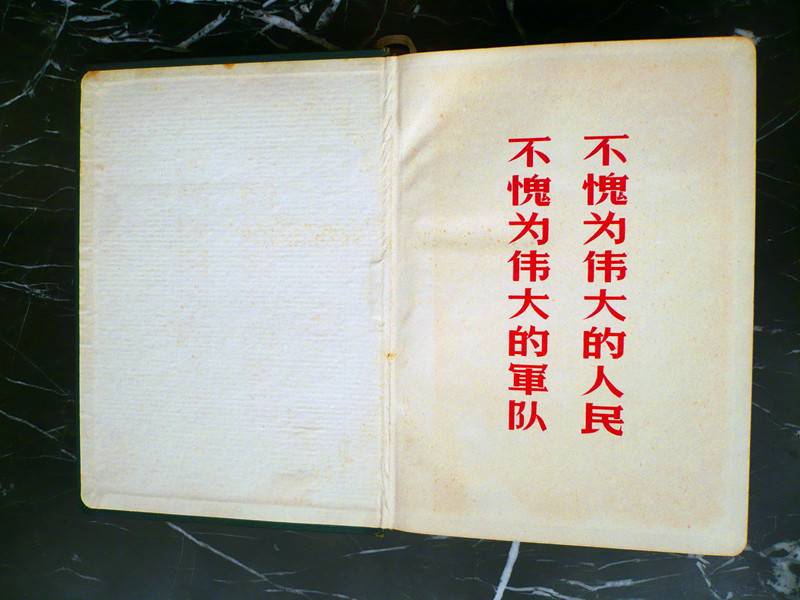 不愧为伟大的人民
不愧为伟大的軍队